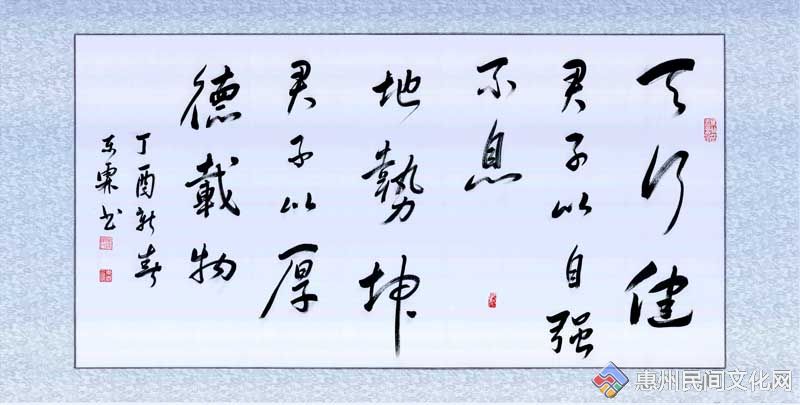 天行健
君子以自强
不息
地勢坤
君子以厚
德載物
丁酉新春
东霖书
惠州民间文化网